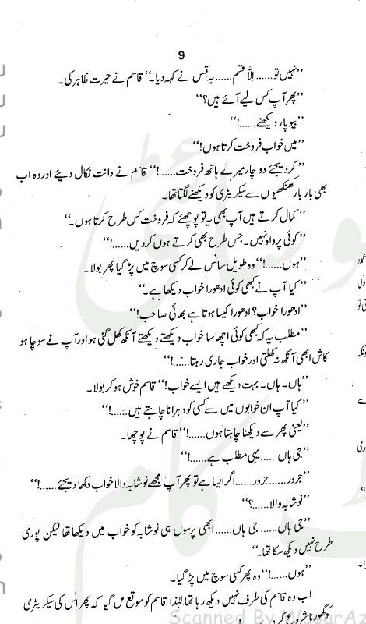 9
"نہیں تو...... اِلّا قسم...... یہ قس نے کہہ دیا۔" قاسم نے حیرت ظاہر کی۔
"پھر آپ کس لیے آئے ہیں؟"
"بیوپار دیکھنے......!"
"میں خواب فروخت کرتا ہوں!"
"کر دیجئے دو چار میرے ہاتھ فروخت......!" قاسم نے دانت نکال دیئے اور وہ اب
بھی بار بار کنکھیوں سے سیکریٹری کو دیکھنے لگتا تھا۔
"کمال کرتے ہیں آپ بھی یہ تو پوچھئے کہ فروخت کس طرح کرتا ہوں۔"
"کوئی پرواہ نہیں۔ جس طرح بھی کرتے ہوں کر دیں......!"
"ہوں......!" وہ طویل سانس لے کر کسی سوچ میں پڑ گیا پھر بولا۔
"کیا آپ نے کبھی کوئی ادھورا خواب دیکھا ہے۔"
"ادھورا خواب؟ ادھورا کیسا ہوتا ہے بھائی صاحب!"
"مطلب یہ کہ کبھی کوئی اچھا سا خواب دیکھتے دیکھتے آنکھ کھل گئی ہو اور آپ نے سوچا ہو
کاش ابھی آنکھ نہ کھلتی اور خواب جاری رہتا......!"
"ہاں۔ ہاں۔ بہت دیکھے ہیں ایسے خواب!" قاسم خوش ہو کر بولا۔
"کیا آپ ان خوابوں میں سے کسی کو دہرانا چاہتے ہیں......!"
"یعنی پھر سے دیکھنا چاہتا ہوں......!" قاسم نے پوچھا۔
"جی ہاں...... یہی مطلب ہے......!"
"جرور...... جرور...... اگر ایسا ہے تو پھر آپ مجھے نوشابہ والا خواب دکھا دیجئے......!"
"نوشابہ والا......؟"
"جی ہاں...... جی ہاں...... ابھی پرسوں ہی نوشابہ کو خواب میں دیکھا تھا لیکن پوری
طرح نہیں دیکھ سکا تھا۔"
"ہوں......!" وہ پھر کسی سوچ میں پڑ گیا۔
اب وہ قاسم کی طرف نہیں دیکھ رہا تھا لہٰذا قاسم کو موقع مل گیا کہ پھر اس کی سیکریٹری
کو گھورنا شروع کر